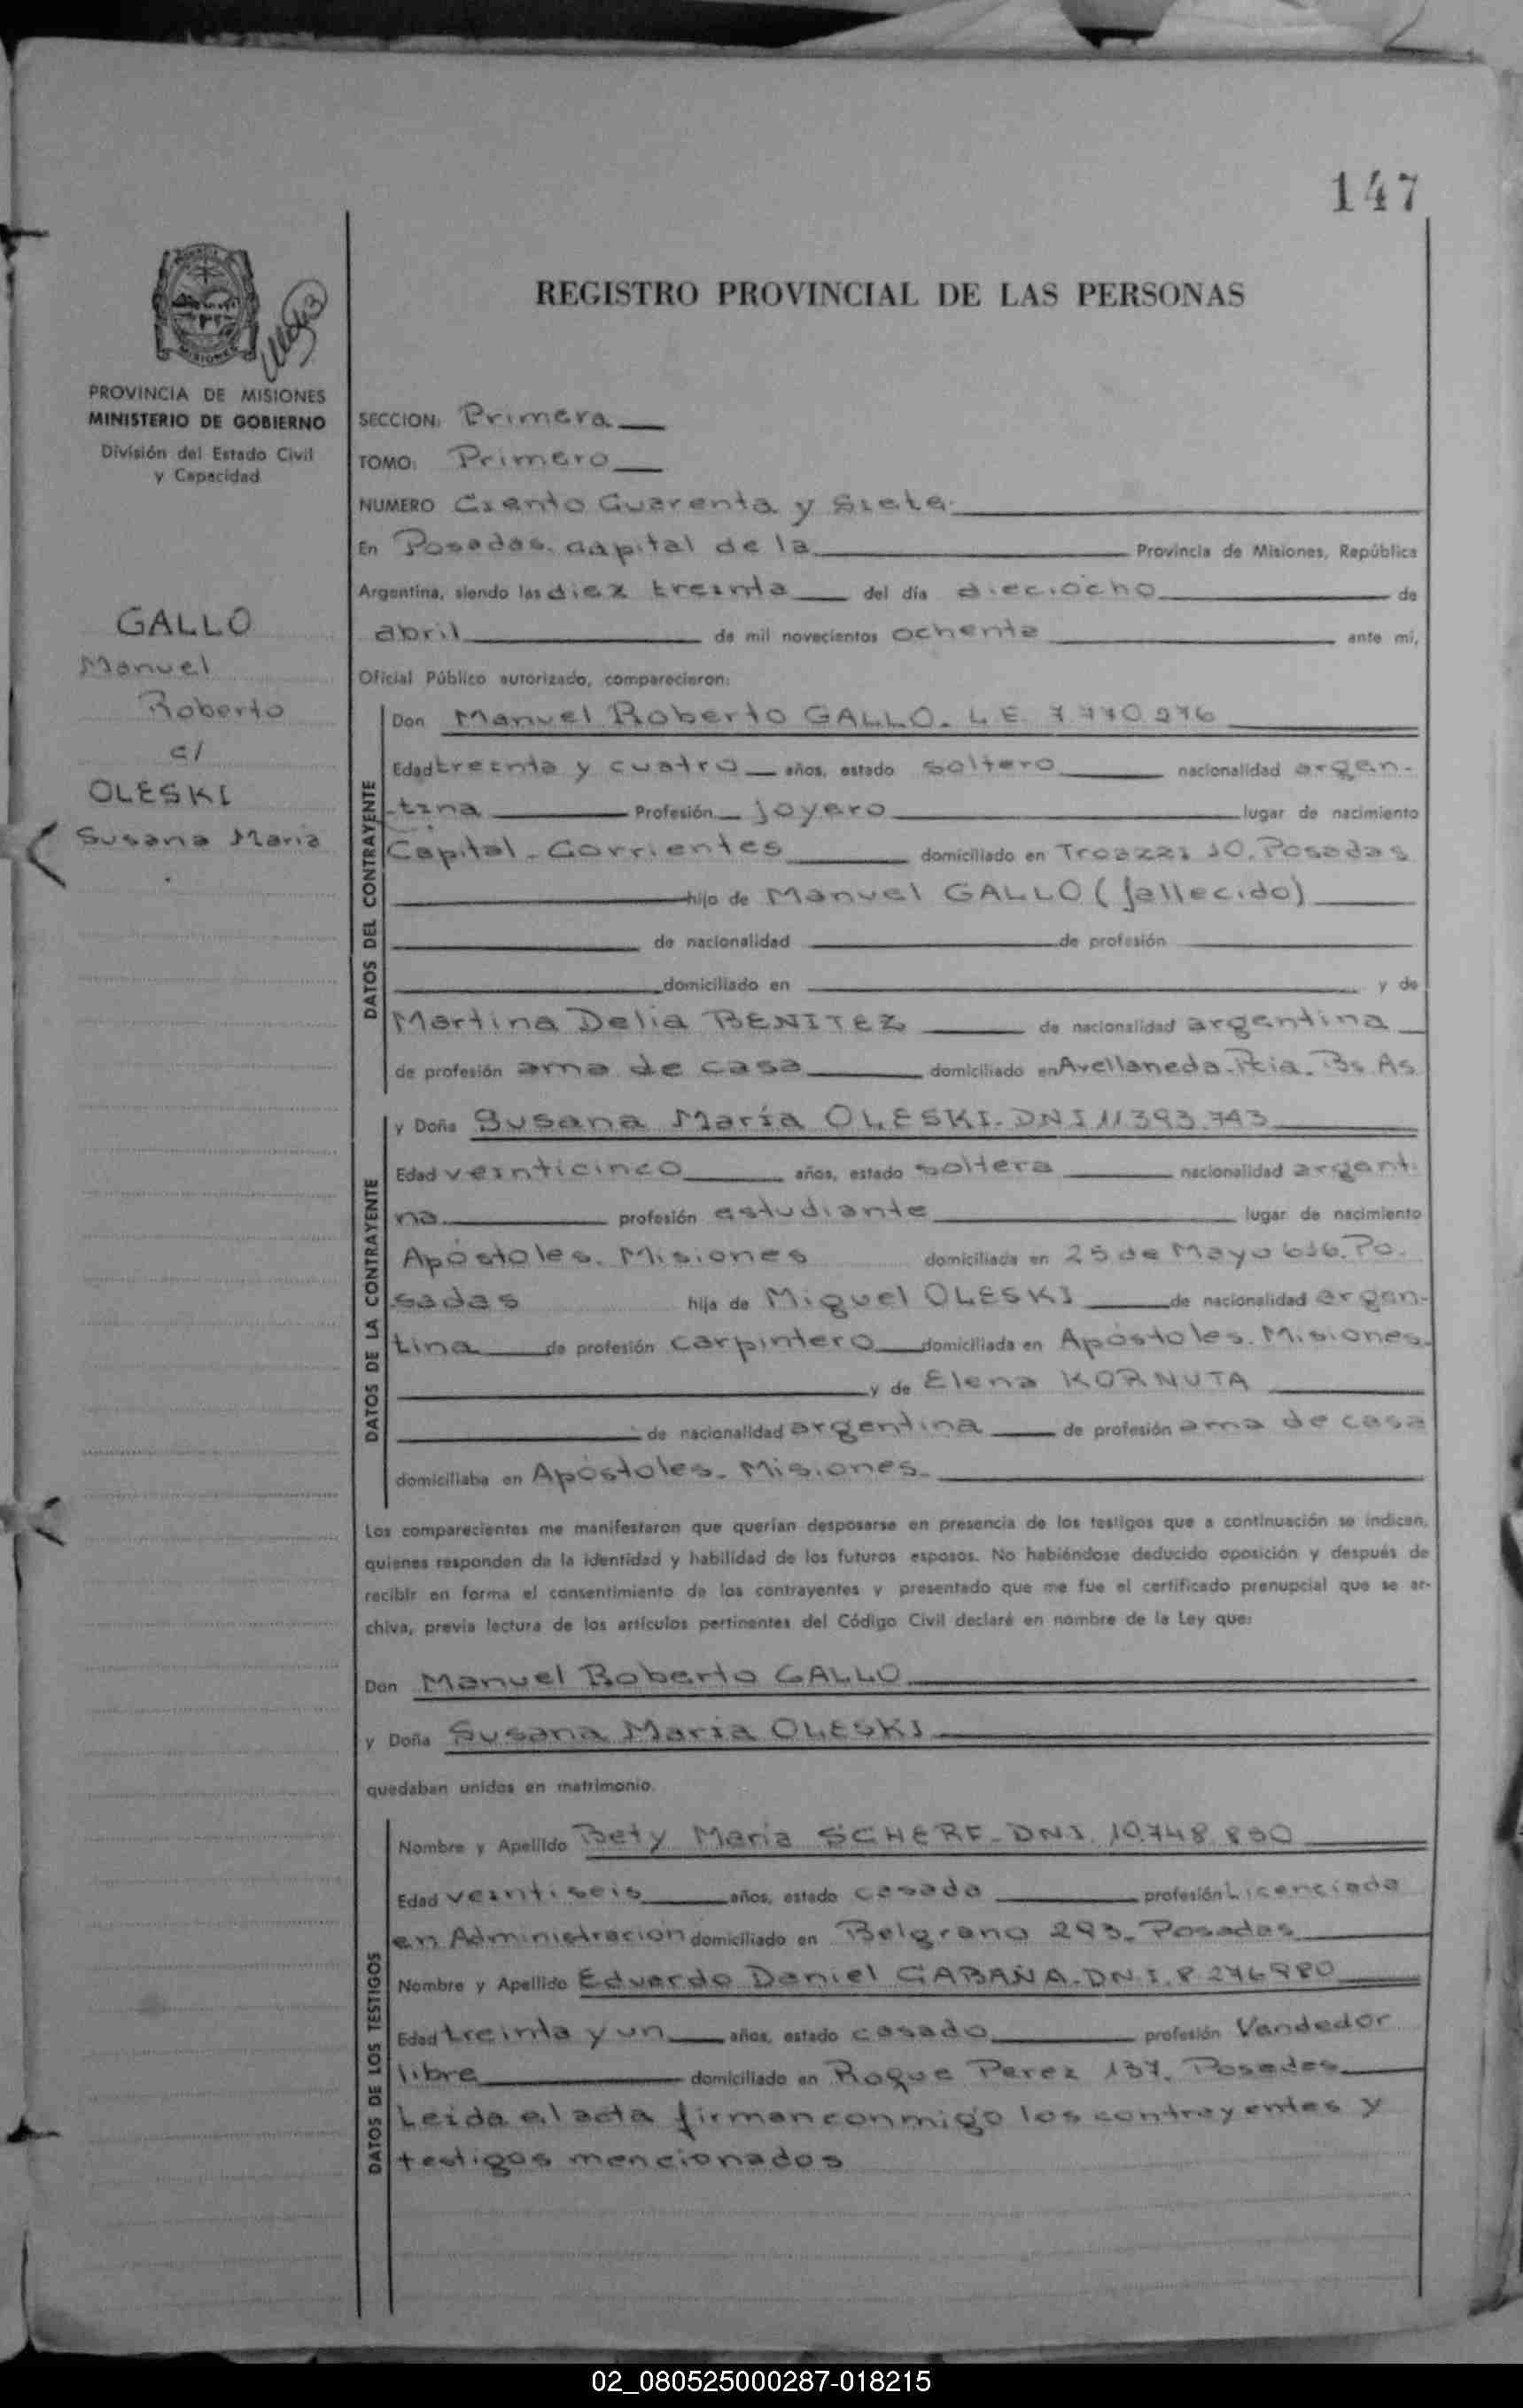 147
REGISTRO PROVINCIAL DE LAS PERSONAS
MISIONES
PROVINCIA DE MISIONES
MINISTERIO DE GOBIERNO
División del Estado Civil
y Capacidad
GALLO
Manuel
Roberto
c/
OLESKI
Susana Maria
SECCION: Primera
TOMO: Primero
NUMERO Ciento Cuarenta y Siete
En Posadas. capital de la Provincia de Misiones, República
Argentina, siendo las diez treinta del día dieciocho de
abril de mil novecientos ochenta ante mí,
Oficial Público autorizado, comparecieron:
DATOS DEL CONTRAYENTE
Don Manuel Roberto GALLO. L.E. 7.770.276
Edad treinta y cuatro años, estado soltero nacionalidad argen-
-tina Profesión Joyero lugar de nacimiento
Capital - Corrientes domiciliado en 10. Posadas
hijo de Manuel GALLO (fallecido)
de nacionalidad de profesión
domiciliado en y de
Martina Delia BENITEZ de nacionalidad argentina
de profesión ama de casa domiciliado en Avellaneda - Pcia. Bs As
DATOS DE LA CONTRAYENTE
y Doña Susana María OLESKI - DNI 11 393.743
Edad veinticinco años, estado soltera nacionalidad argenti
na profesión estudiante lugar de nacimiento
Apóstoles. Misiones domiciliada en 25 de Mayo 616. Po.
sadas hija de Miguel OLESKI de nacionalidad argen-
tina de profesión carpintero domiciliada en Apóstoles. Misiones.
y de Elena KORNUTA
de nacionalidad argentina de profesión ama de casa
domiciliaba en Apóstoles - Misiones.
Los comparecientes me manifestaron que querían desposarse en presencia de los testigos que a continuación se indican,
quienes responden de la identidad y habilidad de los futuros esposos. No habiéndose deducido oposición y después de
recibir en forma el consentimiento de los contrayentes y presentado que me fue el certificado prenupcial que se ar-
chiva, previa lectura de los artículos pertinentes del Código Civil declaré en nombre de la Ley que:
Don Manuel Roberto GALLO
y Doña Susana María OLESKI
quedaban unidos en matrimonio.
DATOS DE LOS TESTIGOS
Nombre y Apellido Bety María SCHERF - DNI. 10.748.830
Edad veintiseis años, estado casada profesión Licenciada
en Administración domiciliado en Belgrano 293. Posadas
Nombre y Apellido Eduardo Daniel CABAÑA - DN.I. 8 276980
Edad treinta y un años, estado casado profesión Vendedor
libre domiciliado en Roque Perez 137. Posadas
Leida el acta firman conmigo los contrayentes y
testigos mencionados
02_080525000287-018215